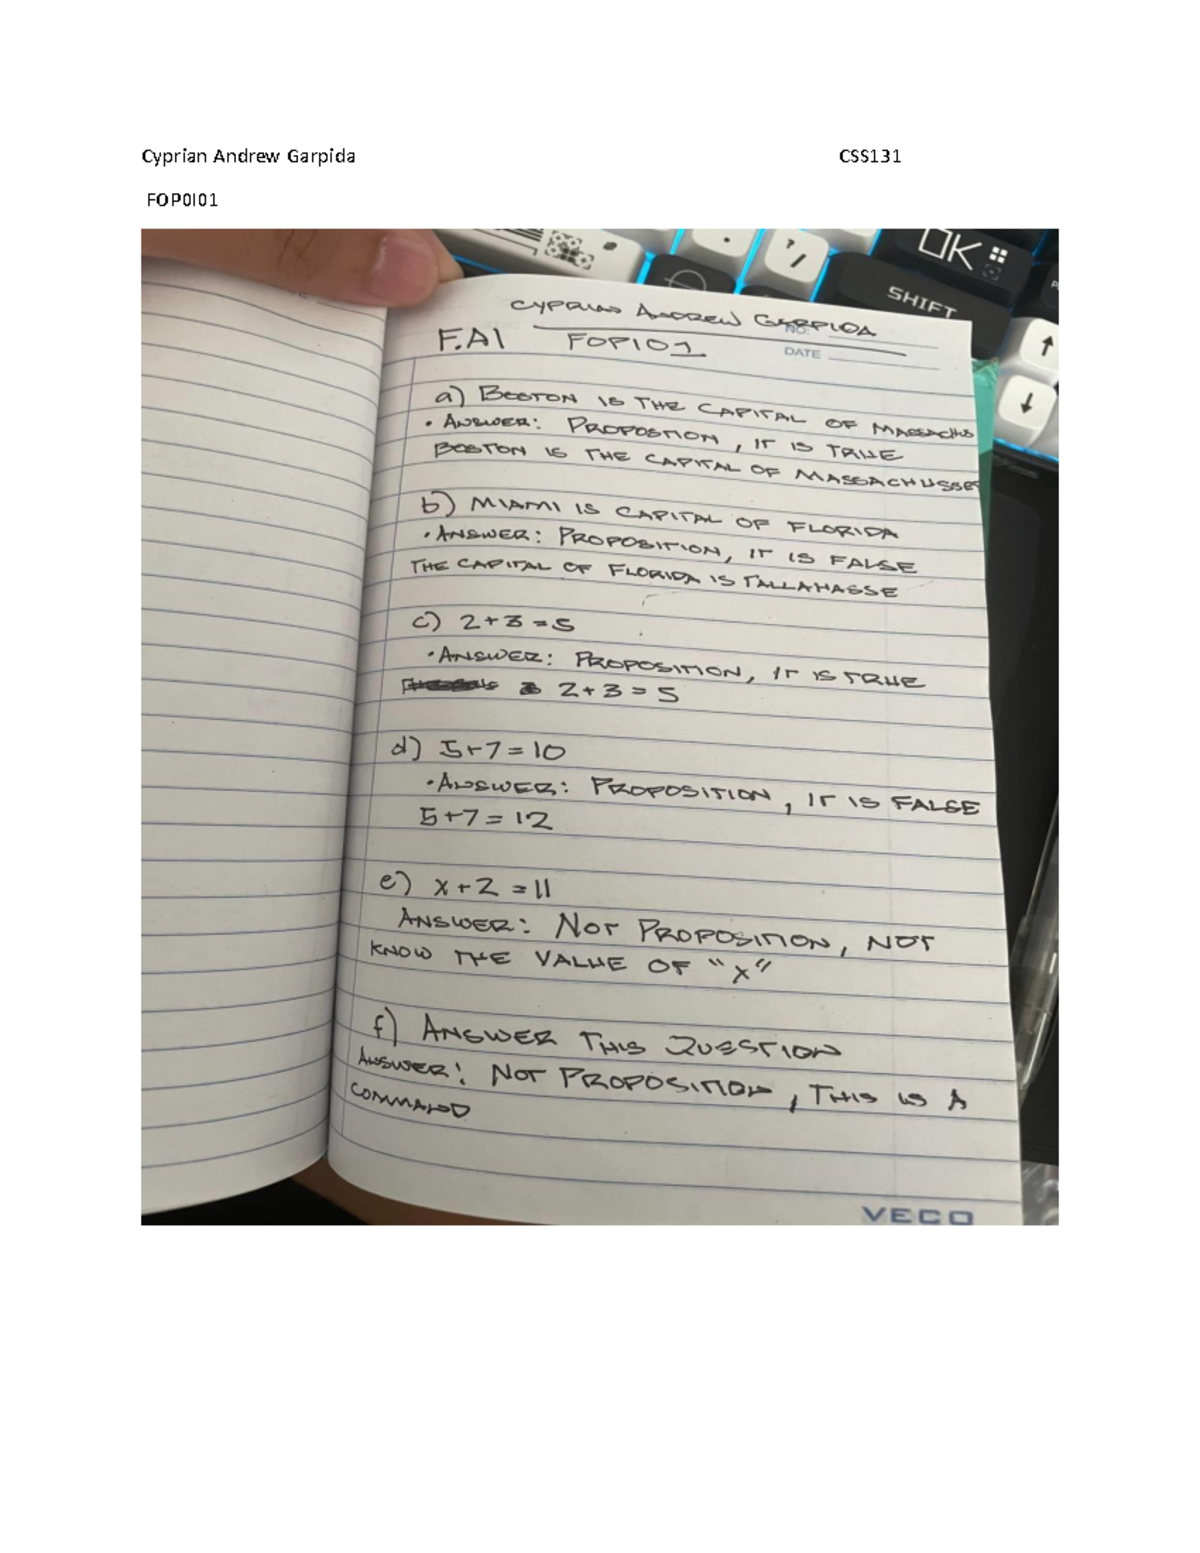 Cyprian Andrew Garpida CSS131
FOP0I01
OK
SHIFT
CYPRIAN ANDREW GARPIDA
NO:
F.A1 FOPI01
DATE
a) BOSTON IS THE CAPITAL OF MASSACHUS
• ANSWER: PROPOSTION, IT IS TRUE
BOSTON IS THE CAPITAL OF MASSACHUSSET
b) MIAMI IS CAPITAL OF FLORIDA
• ANSWER: PROPOSITION, IT IS FALSE
THE CAPITAL OF FLORIDA IS TALLAHASSE
c) 2+3=5
• ANSWER: PROPOSITION, IT IS TRUE
2+3=5
d) 5+7=10
• ANSWER: PROPOSITION, IT IS FALSE
5+7=12
e) x+2=11
ANSWER: NOT PROPOSITION, NOT
KNOW THE VALUE OF "X"
f) ANSWER THIS QUESTION
ANSWER: NOT PROPOSITION, THIS IS A
COMMAND
VECO